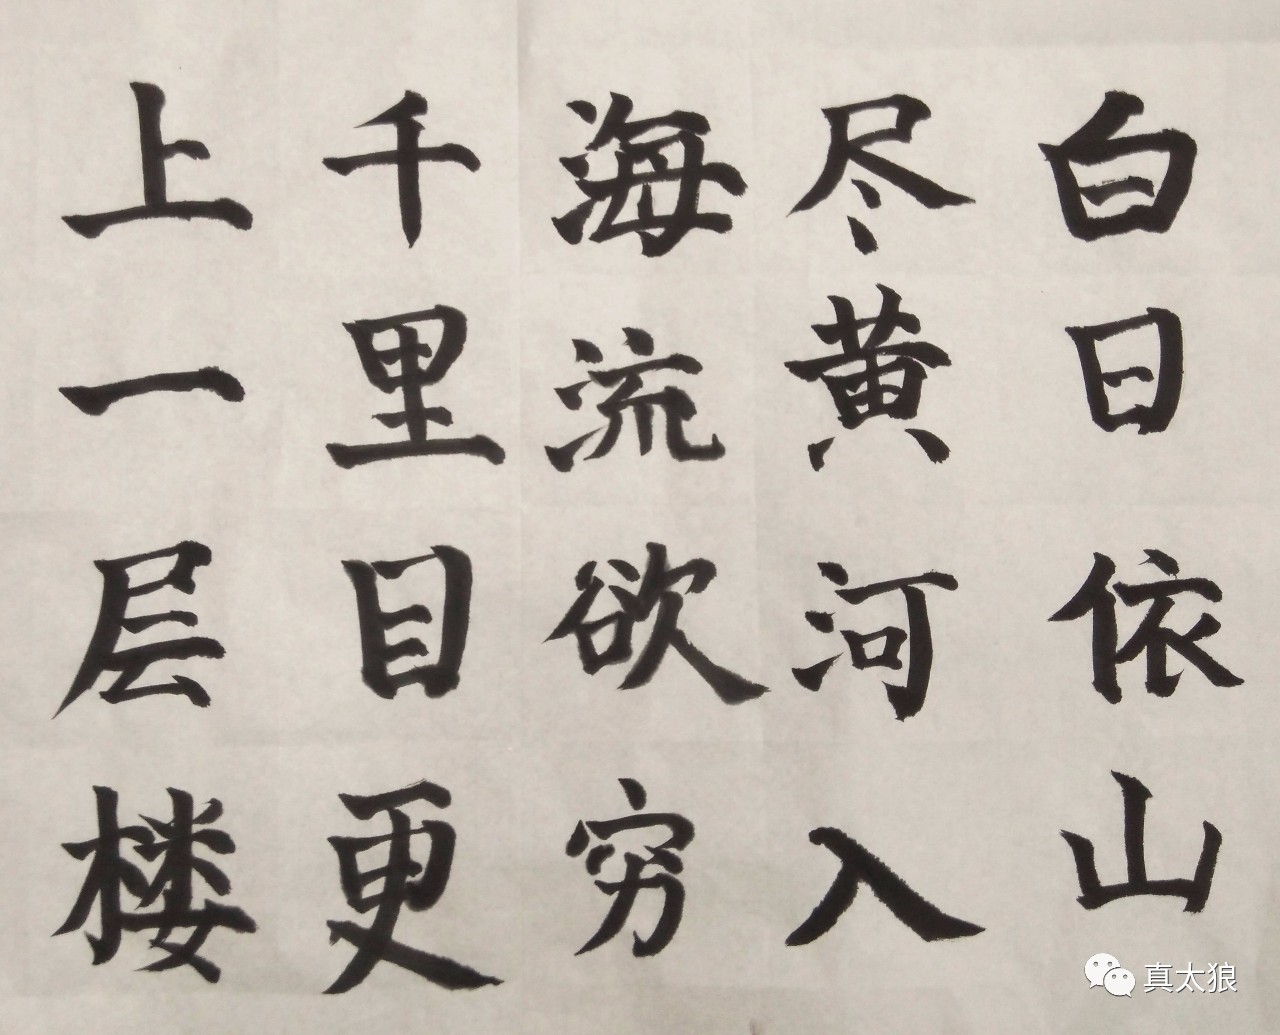 白日依山
尽黄河入
海流欲穷
千里目更
上一层楼
真太狼